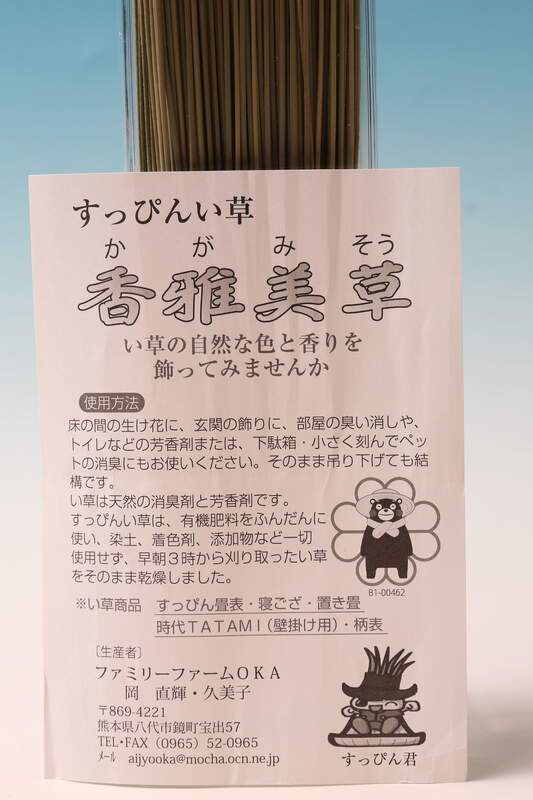 すっぴんい草
か が み そう
香雅美草
い草の自然な色と香りを
飾ってみませんか
使用方法
床の間の生け花に、玄関の飾りに、部屋の臭い消しや、
トイレなどの芳香剤または、下駄箱・小さく刻んでペッ
トの消臭にもお使いください。そのまま吊り下げても結
構です。
い草は天然の消臭剤と芳香剤です。
すっぴんい草は、有機肥料をふんだんに
使い、染土、着色剤、添加物など一切
使用せず、早朝3時から刈り取ったい草
をそのまま乾燥しました。
B1-00462
※い草商品 すっぴん畳表・寝ござ・置き畳
時代TATAMI(壁掛け用)・柄表
〔生産者〕
ファミリーファームOKA
岡 直輝・久美子
〒869-4221
熊本県八代市鏡町宝出57
TEL・FAX(0965)52-0965
メール aijyooka@mocha.ocn.ne.jp
すっぴん君